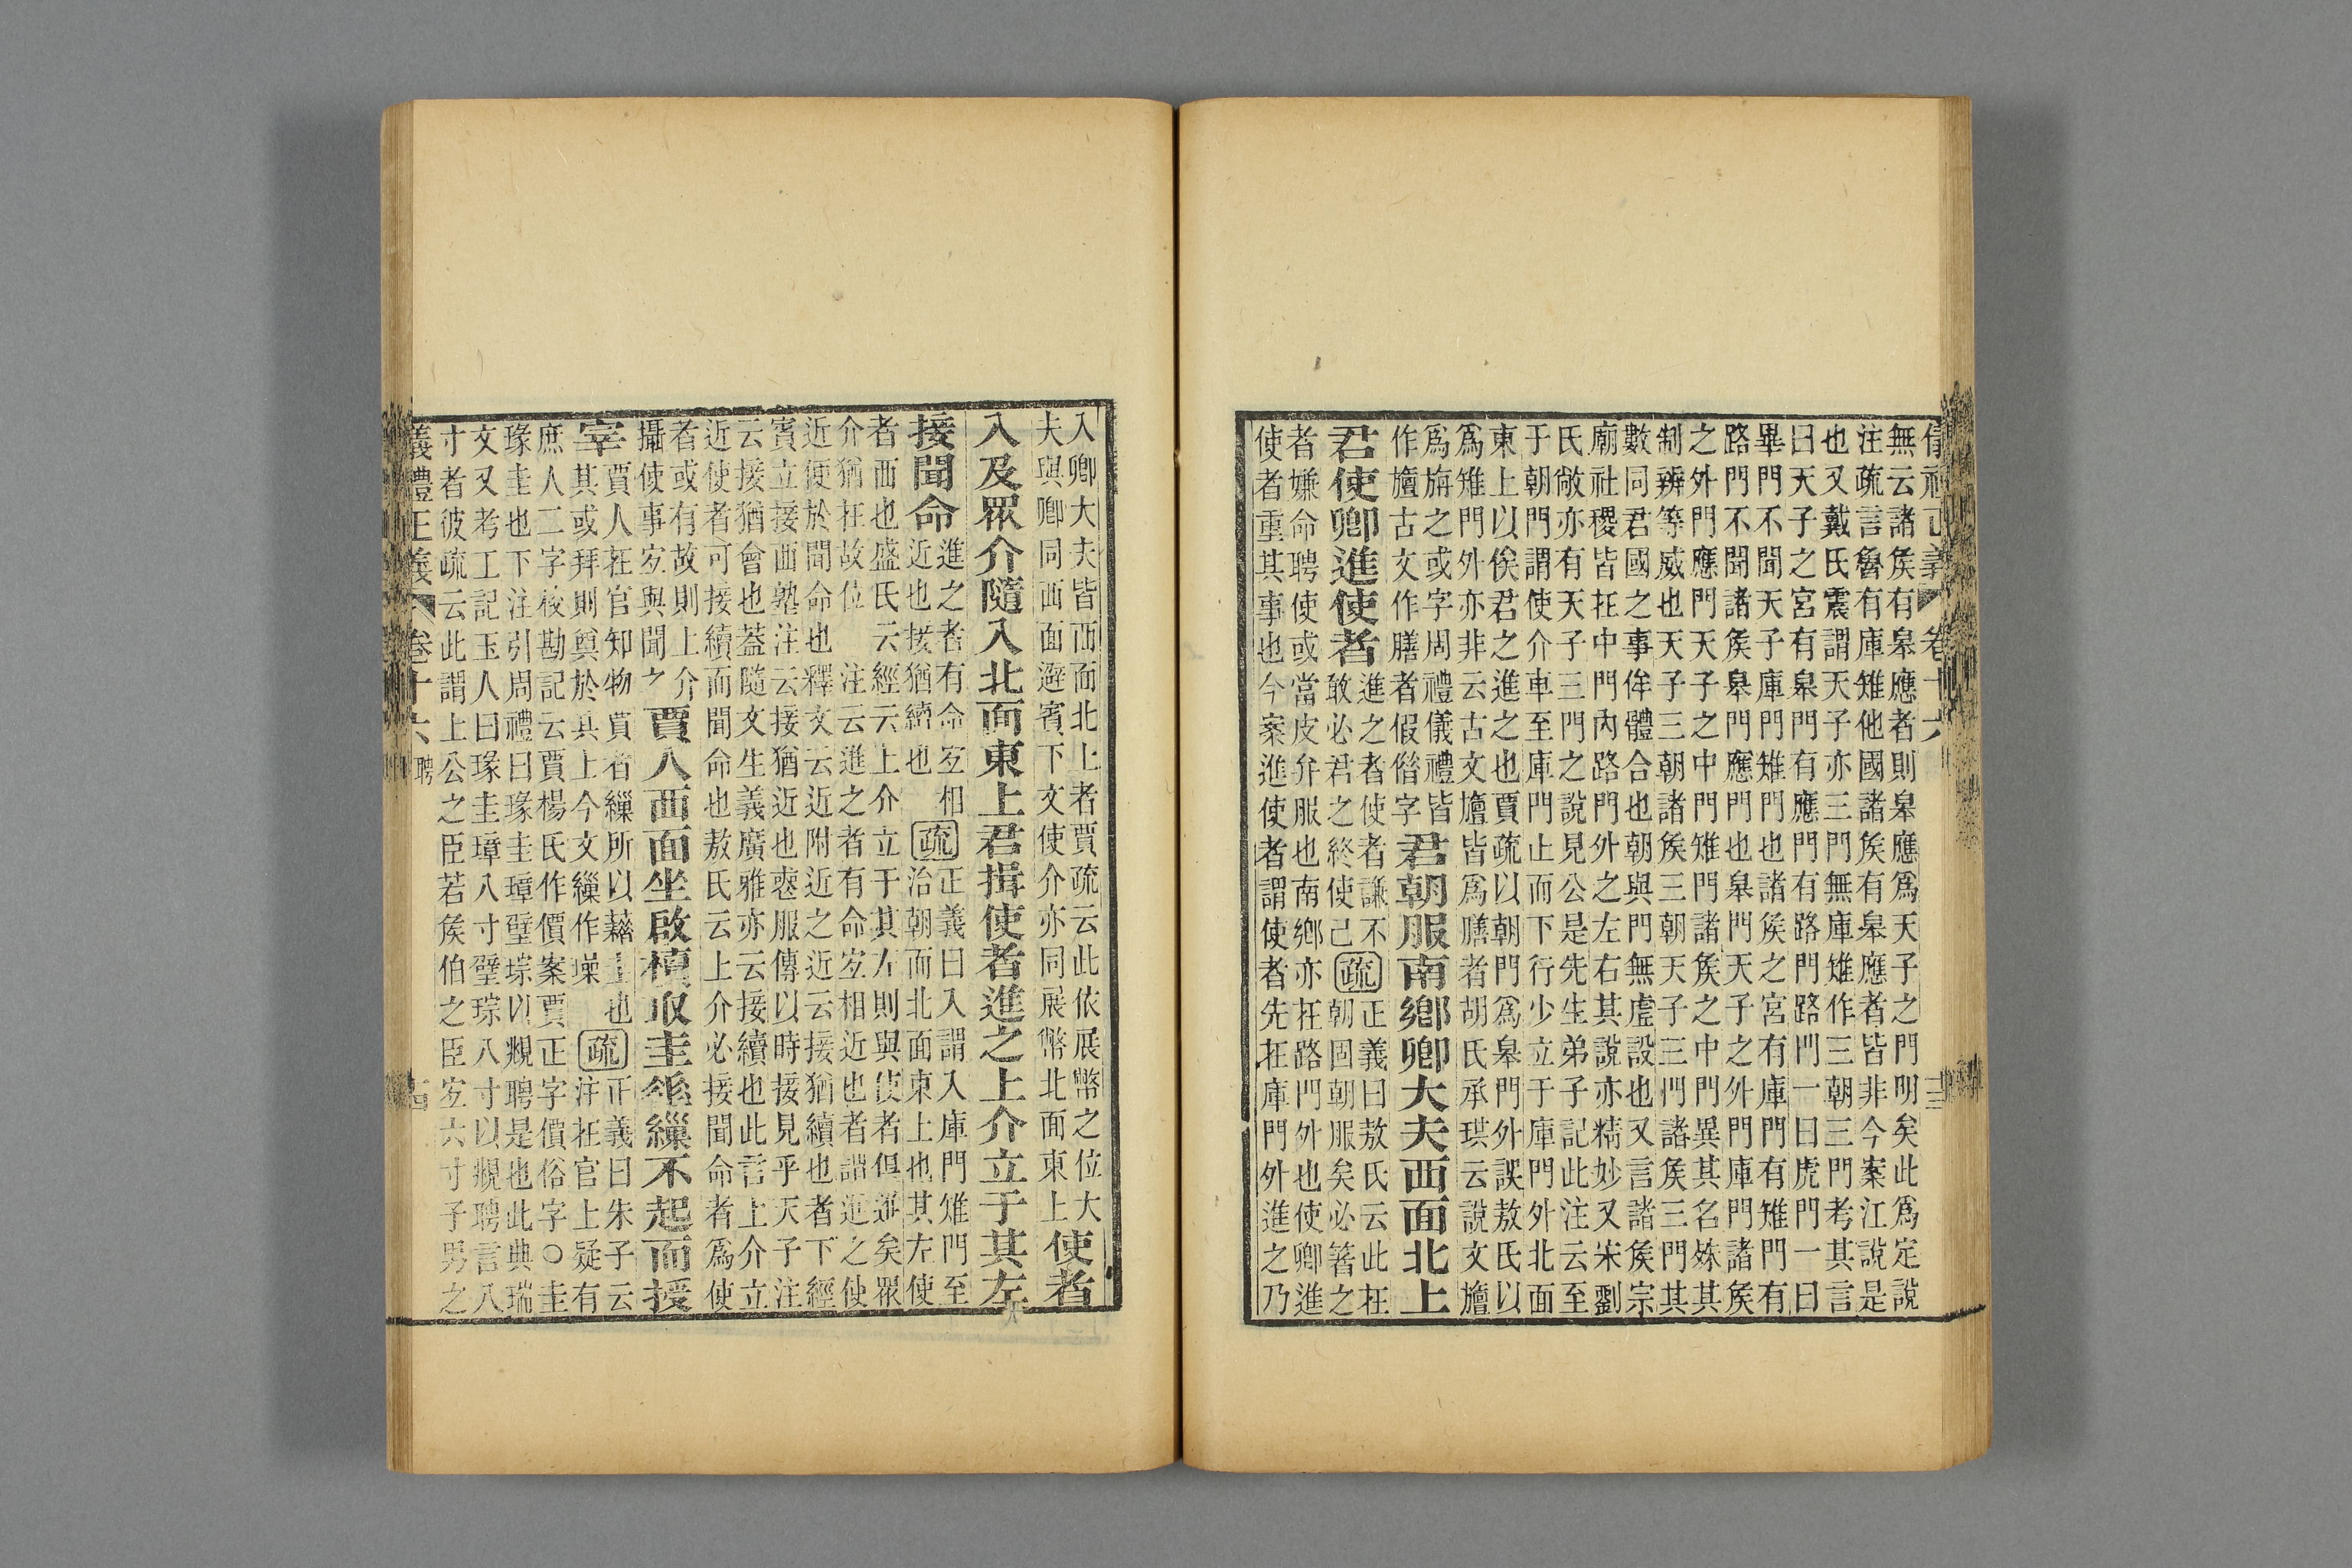 無云諸矦有皋應者則皋應爲天子之門明矣此爲定說
注疏言魯有庫雉他國諸矦有皋應者皆非今案江說是
也又戴氏震謂天子亦三門無庫雉作三朝三門考其言
曰天子之宮有皋門有應門有路門路門一曰虎門一曰
畢門不聞天子庫門雉門也諸矦之宮有庫門有雉門有
路門不聞諸矦皋門應門也皋門天子之外門庫門諸矦
之外門應門天子之中門雉門諸矦之中門異其名殊其
制辨等威也天子三朝諸矦三朝天子三門諸矦三門其
數同君國之事侔體合也朝與門無虛設也又言諸矦宗
廟社稷皆在中門內路門外之左右其說亦精妙又宋劉
氏敞亦有天子三門之說見公是先生弟子記此注云至
于朝門謂使介車至庫門止而下行少立于庫門外北面
東上以俟君之進之也賈疏以朝門爲皋門外誤敖氏以
爲雉門外亦非云古文旜皆爲膳者胡氏承珙云說文旜
爲旃之或字周禮儀禮皆
作旜古文作膳者假偕字
君朝服南鄉卿大夫西面北上
君使卿進使者
進之者使者謙不
敢必君之終使己
疏
正義曰敖氏云此在
朝固朝服矣必著之
者嫌命聘使或當皮弁服也南鄉亦在路門外也使卿進
使者重其事也今案進使者謂使者先在庫門外進之乃
入卿大夫皆西面北上者賈疏云此依展幣之位大
夫與卿同西面避賓下文使介亦同展幣北面東上
使者
入及眾介隨入北面東上君揖使者進之上介立于其左
接聞命
進之者有命宜相
近也接猶續也
疏
正義曰入謂入庫門雉門至
治朝而北面東上也其左使
者西也盛氏云經云上介立于其左則與使者俱進矣眾
介猶在故位 注云進之者有命宜相近也者謂進之使
近便於聞命也釋文云近附近之近云接猶續也者下經
賓立接西塾注云接猶近也喪服傳以時接見乎天子注
云接猶會也蓋隨文生義廣雅亦云接續也此言上介立
近使者可接續而聞命也敖氏云上介必接聞命者爲使
者或有故則上介
攝使事宜與聞之
賈人西面坐啟櫝取圭垂繅不起而授
宰
賈人在官知物賈者繅所以藉圭也
其或拜則奠於其上今文繅作璪
疏
正義曰朱子云
注在官上疑有
庶人二字校勘記云賈楊氏作價案賈正字價俗字○圭
瑑圭也下注引周禮曰瑑圭璋璧琮以覜聘是也此典瑞
文又考工記玉人曰瑑圭璋八寸璧琮八寸以覜聘言八
寸者彼疏云此謂上公之臣若矦伯之臣宜六寸子男之
義禮正義 卷十六 聘